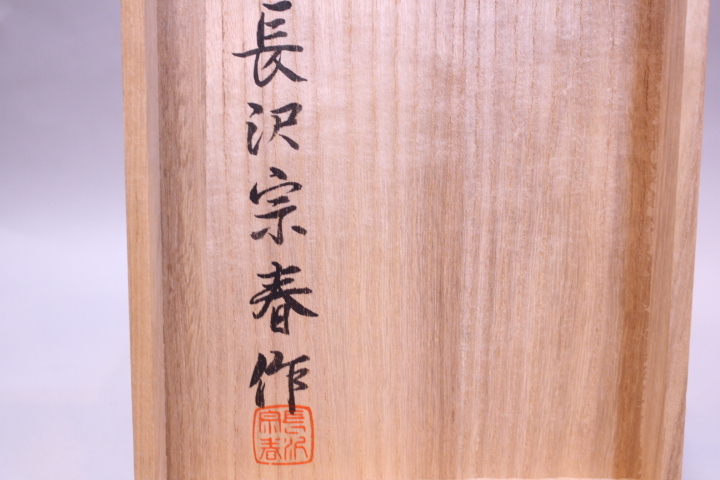 長沢宗春作
長沢
宗春